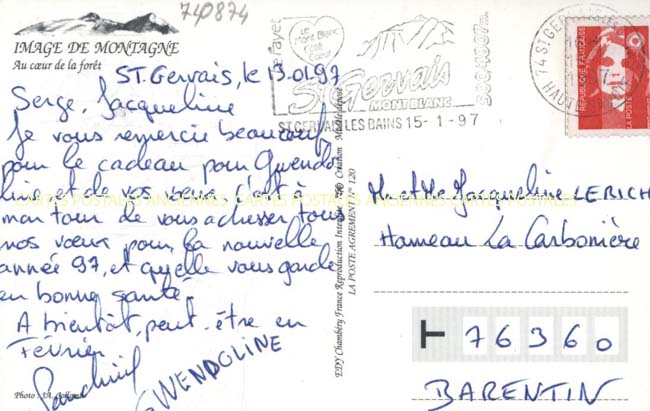 740874
IMAGE DE MONTAGNE
Au cœur de la forêt
ST. Gervais, le 13.01.97
Serge, Jacqueline
Je vous remercie beaucoup
pour le cadeau pour Gwendo-
line et de vos vœux. C'est à
mon tour de vous adresser tous
nos vœux pour la nouvelle
année 97, et qu'elle vous garde
en bonne santé.
A bientôt, peut-être en
Février
GWENDOLINE
Photo : JA.
EDY Chambéry France Reproduction Interdite
Création Modèle déposé
LA POSTE AGREMENT N° 120
Le Mont Blanc
Côté
Coeur
St Gervais
MONT BLANC
ST GERVAIS LES BAINS 15-1-97
74 ST GERVAIS LES
HAUTE
REPUBLIQUE FRANÇAISE
LA POSTE
M et Me Jacqueline LERICH
Hameau La Carbonière
76360
BARENTIN
CARTES POSTALES ANCIENNES CARTES POSTALES ANCIENNES CARTES POSTALES